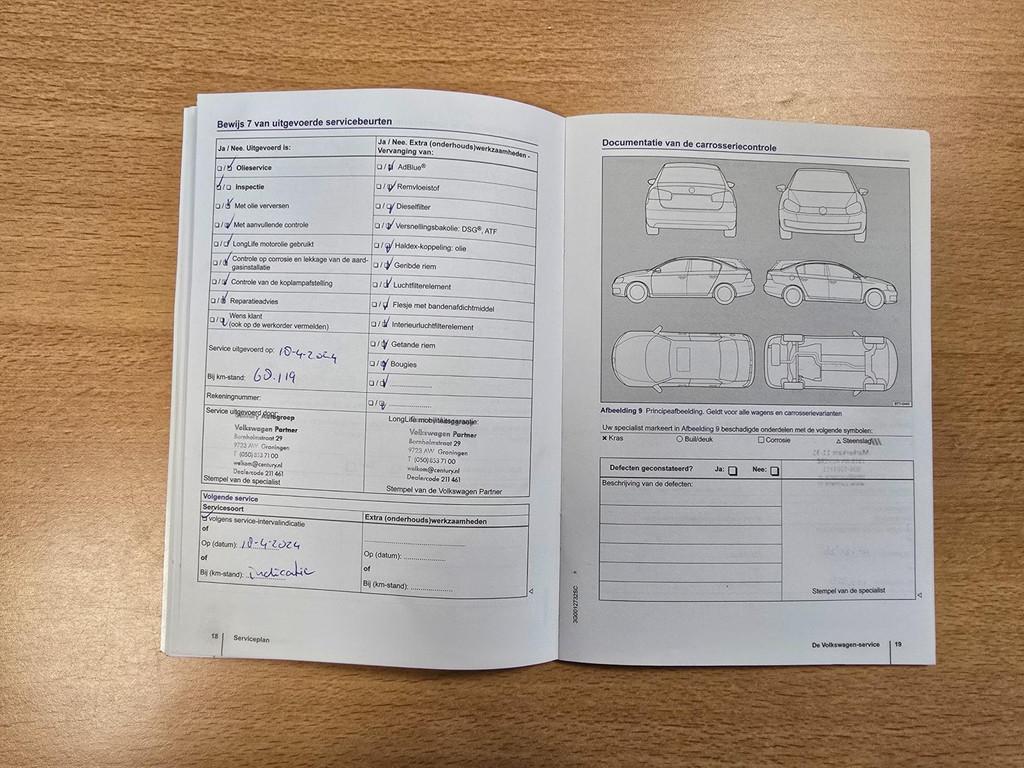 Bewijs 7 van uitgevoerde servicebeurten
Ja / Nee. Uitgevoerd is:
Olieservice
Inspectie
Met olie verversen
Met aanvullende controle
LongLife motorolie gebruikt
Controle op corrosie en lekkage van de aard-
gasinstallatie
Controle van de koplampafstelling
Reparatieadvies
Wens klant
(ook op de werkorder vermelden)
Service uitgevoerd op: 10-4-2024
Bij km-stand: 60.119
Rekeningnummer:
Service uitgevoerd door:
Volkswagen Partner
Bornholmstraat 29
9723 AW Groningen
T (050) 853 71 00
welkom@century.nl
Dealercode 211 461
Stempel van de specialist
Ja / Nee. Extra (onderhouds)werkzaamheden -
Vervanging van:
AdBlue®
Remvloeistof
Dieselfilter
Versnellingsbakolie: DSG®, ATF
Haldex-koppeling: olie
Geribde riem
Luchtfilterelement
Flesje met bandenafdichtmiddel
Interieurluchtfilterelement
Getande riem
Bougies
LongLife mobiliteitsgarantie:
Volkswagen Partner
Bornholmstraat 29
9723 AW Groningen
T (050) 853 71 00
welkom@century.nl
Dealercode 211 461
Stempel van de Volkswagen Partner
Volgende service
Servicesoort
volgens service-intervalindicatie
of
Op (datum): 10-4-2024
of
Bij (km-stand): indicatie
Extra (onderhouds)werkzaamheden
Op (datum):
of
Bij (km-stand):
18 Serviceplan
Documentatie van de carrosseriecontrole
Afbeelding 9 Principeafbeelding. Geldt voor alle wagens en carrosserievarianten
Uw specialist markeert in Afbeelding 9 beschadigde onderdelen met de volgende symbolen:
× Kras ○ Buil/deuk □ Corrosie △ Steenslag
Defecten geconstateerd? Ja: Nee:
Beschrijving van de defecten:
Stempel van de specialist
3G0012732SC
De Volkswagen-service 19